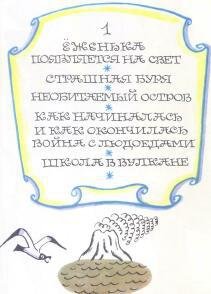 1
ЁЖЕНЬКА
ПОЯВЛЯЕТСЯ НА СВЕТ
СТРАШНАЯ БУРЯ
НЕОБИТАЕМЫЙ ОСТРОВ
КАК НАЧИНАЛАСЬ
И КАК ОКОНЧИЛАСЬ
ВОЙНА С ЛЮДОЕДАМИ
ШКОЛА В ВУЛКАНЕ